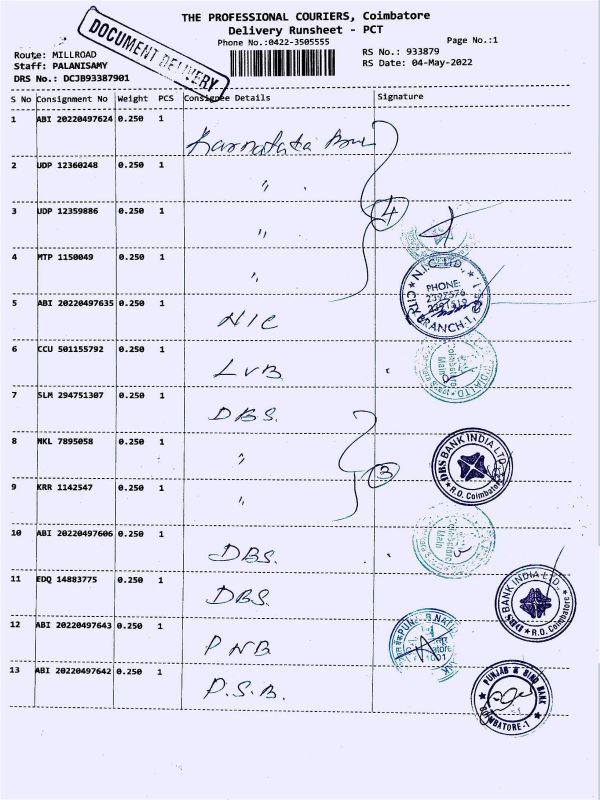 THE PROFESSIONAL COURIERS, Coimbatore
Delivery Runsheet - PCT
Phone No.:0422-3505555
Page No.:1
DOCUMENT DELIVERY
Route: MILLROAD
Staff: PALANISAMY
DRS No.: DCJB93387901
RS No.: 933879
RS Date: 04-May-2022
S No Consignment No Weight PCS Consignee Details Signature
1 ABI 20220497624 0.250 1 Karnataka
2 UDP 12360248 0.250 1 "
3 UDP 12359886 0.250 1 "
4
4 MTP 1150049 0.250 1 "
N.I.C. LTD.,
PHONE:
CITY BRANCH-1,
5 ABI 20220497635 0.250 1 NIC
6 CCU 501155792 0.250 1 LVB
Coimbatore
Main
7 SLM 294751307 0.250 1 DBS.
8 NKL 7895058 0.250 1 "
3
DBS BANK INDIA LTD.
R.O. Coimbatore
9 KRR 1142547 0.250 1 "
10 ABI 20220497606 0.250 1 DBS.
Coimbatore
Main
11 EDQ 14883775 0.250 1 DBS.
DBS BANK INDIA LTD.
R.O. Coimbatore
12 ABI 20220497643 0.250 1 PNB
13 ABI 20220497642 0.250 1 P.S.B.
PUNJAB & SIND BANK
COIMBATORE-1